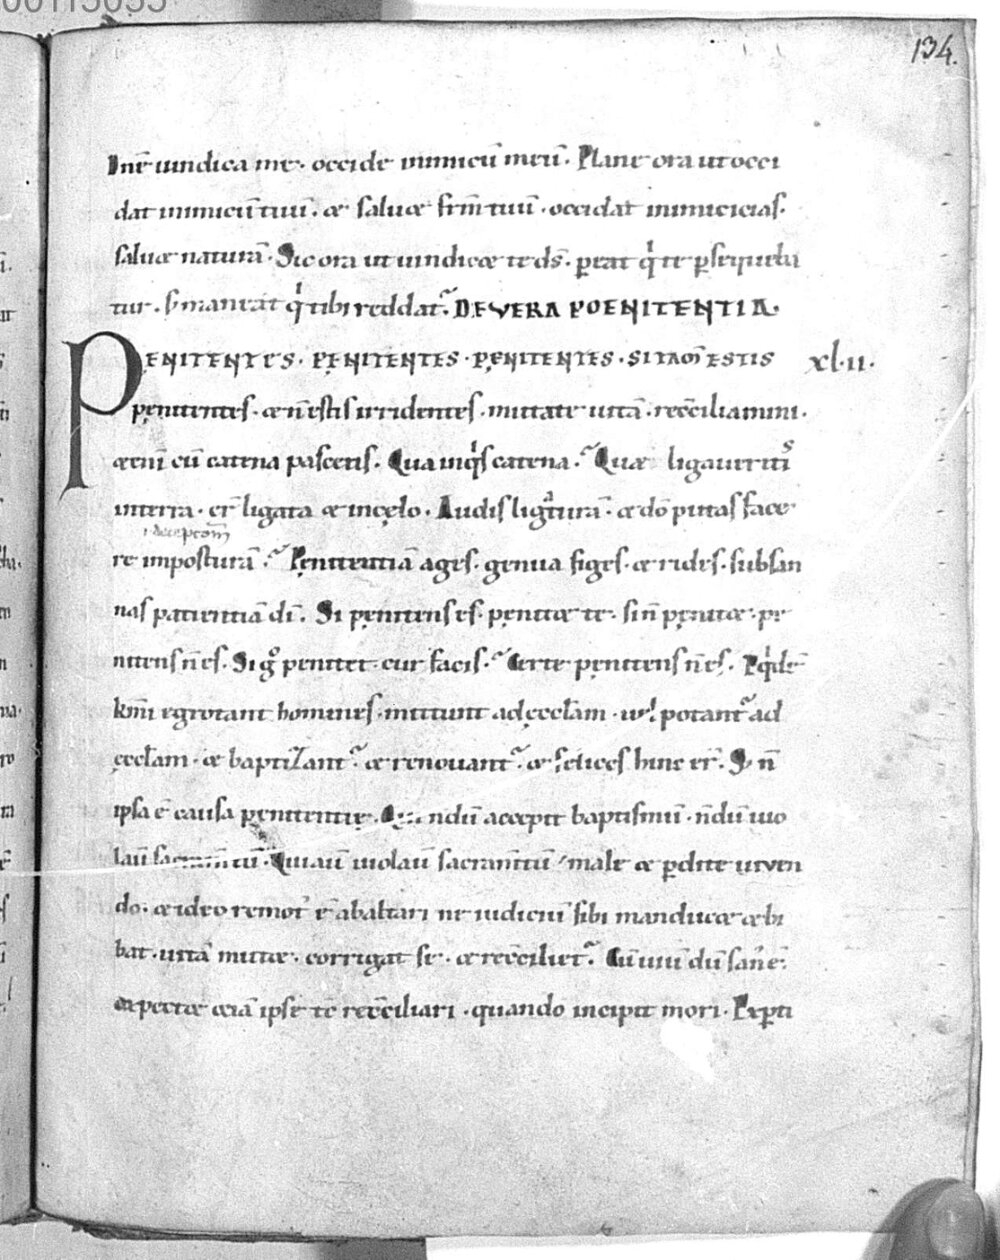 00115055
134.
Dnē uindica me· occide inimicū meū· Plane ora ut occi
dat inimicū tuū· & salu& frm̄ tuū· occidat inimicicias·
salu& naturā· Sic ora ut uindic& te ds̄· pereat qͥ te persequeba
tur· sꝫ maneat qͥ tibi reddat᷉· DE VERA POENITENTIA·
PENITENTES· PENITENTES· PENITENTES· SI TAM̄ ESTIS xl·ii·
pęnitentes· & n̄ estis irridentes· mutate uitā· recc̄iliamini·
& eni cū catena pascetis· Qua inqͥs catena· Quæ ligaueritis
in terra· er̄ ligata & in cęlo· Audis ligͣturā· & dō putas face
re imposturā· Pęnitentiā ages· genua figes· & rides· subsan
nas patientiā dī· Si pęnitens es· pęnit& te· sin̄ pęnit&· pę
nitens n̄ es· Si gͦ penitet· cur facis· Certe pęnitens n̄ es·
egrotant homines· mittunt ad ęcclam· uꝉ potant᷉ ad
ęcclam· & baptizant᷉ & renouant᷉· & felices hinc er̄· S; n̄
ipsa ē causa pęnitentię· ndū accepit baptismū· n̄dū uio
lauī sacram̄tū· Qui aū uiolauī sacram̄tū male & perdite uiuen
do· & ideo remot᾽ ē ab altari ne iudiciū sibi manduc& & bi
bat· uitā mut&· corrigat se· & recc̄iliet᷉· Cū uiuī dū san᾽ ē·
expect& &iā ipse tē recc̄iliari· quando incipit mori· Experti